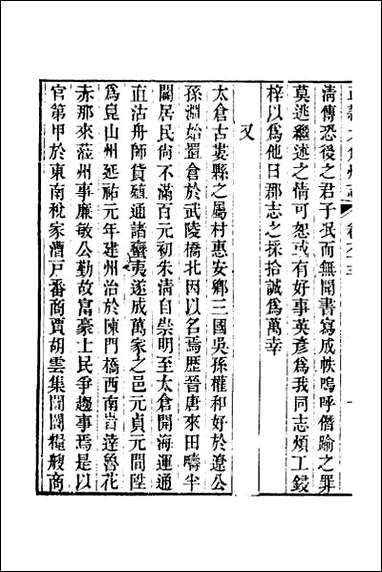 淸傳恐後之君子泯而無聞書寫成帙嗚呼僭踰之罪
莫逃繼述之情可恕或有好事英彥爲我同志煩工鋟
梓以爲他日郡志之採拾誠爲萬幸
又
太倉古婁縣之屬村惠安鄉三國吳孫權和好於遼公
孫淵始置倉於武陵橋北因以名焉歷晉唐來田疇半
闢居民尙不滿百元初朱淸自崇明至太倉開海運通
直沽舟師貨殖通諸蠻夷遂成萬家之邑元貞元間陞
爲崑山州延祐元年建州治於陳門橋西南首達魯花
赤那來蒞州事廉敏公勤故富豪士民爭趨事焉是以
官第甲於東南稅家漕戶番商賈胡雲集闤闠糧艘商